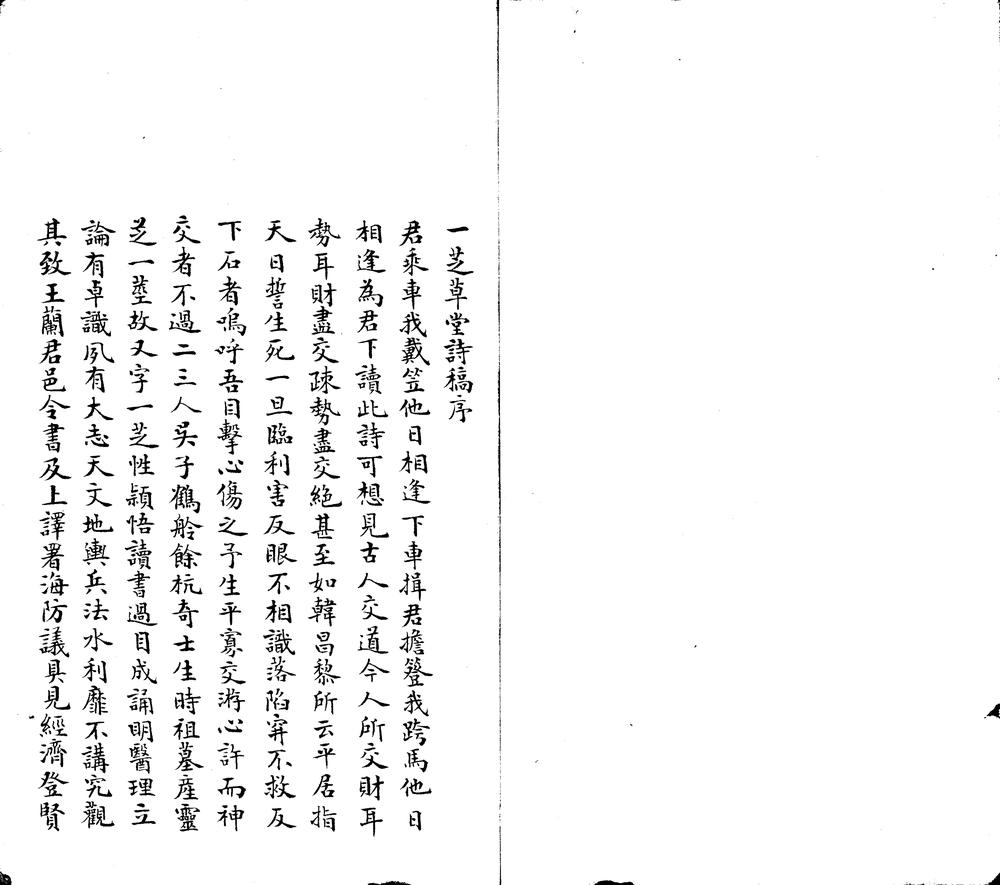 一芝草堂詩稿序
君乘車我戴笠他日相逢下車揖君擔簦我跨馬他日
相逢為君下讀此詩可想見古人交道今人所交財耳
勢耳財盡交疎勢盡交絕甚至如韓昌黎所云平居指
天日誓生死一旦臨利害反眼不相識落陷穽不救反
下石者嗚呼吾目擊心傷之予生平寡交游心許而神
交者不過二三人吳子鶴舲餘杭奇士生時祖墓產靈
芝一莖故又字一芝性穎悟讀書過目成誦明醫理立
論有卓識夙有大志天文地輿兵法水利靡不講究觀
其致王蘭君邑令書及上譯署海防議具見經濟登賢